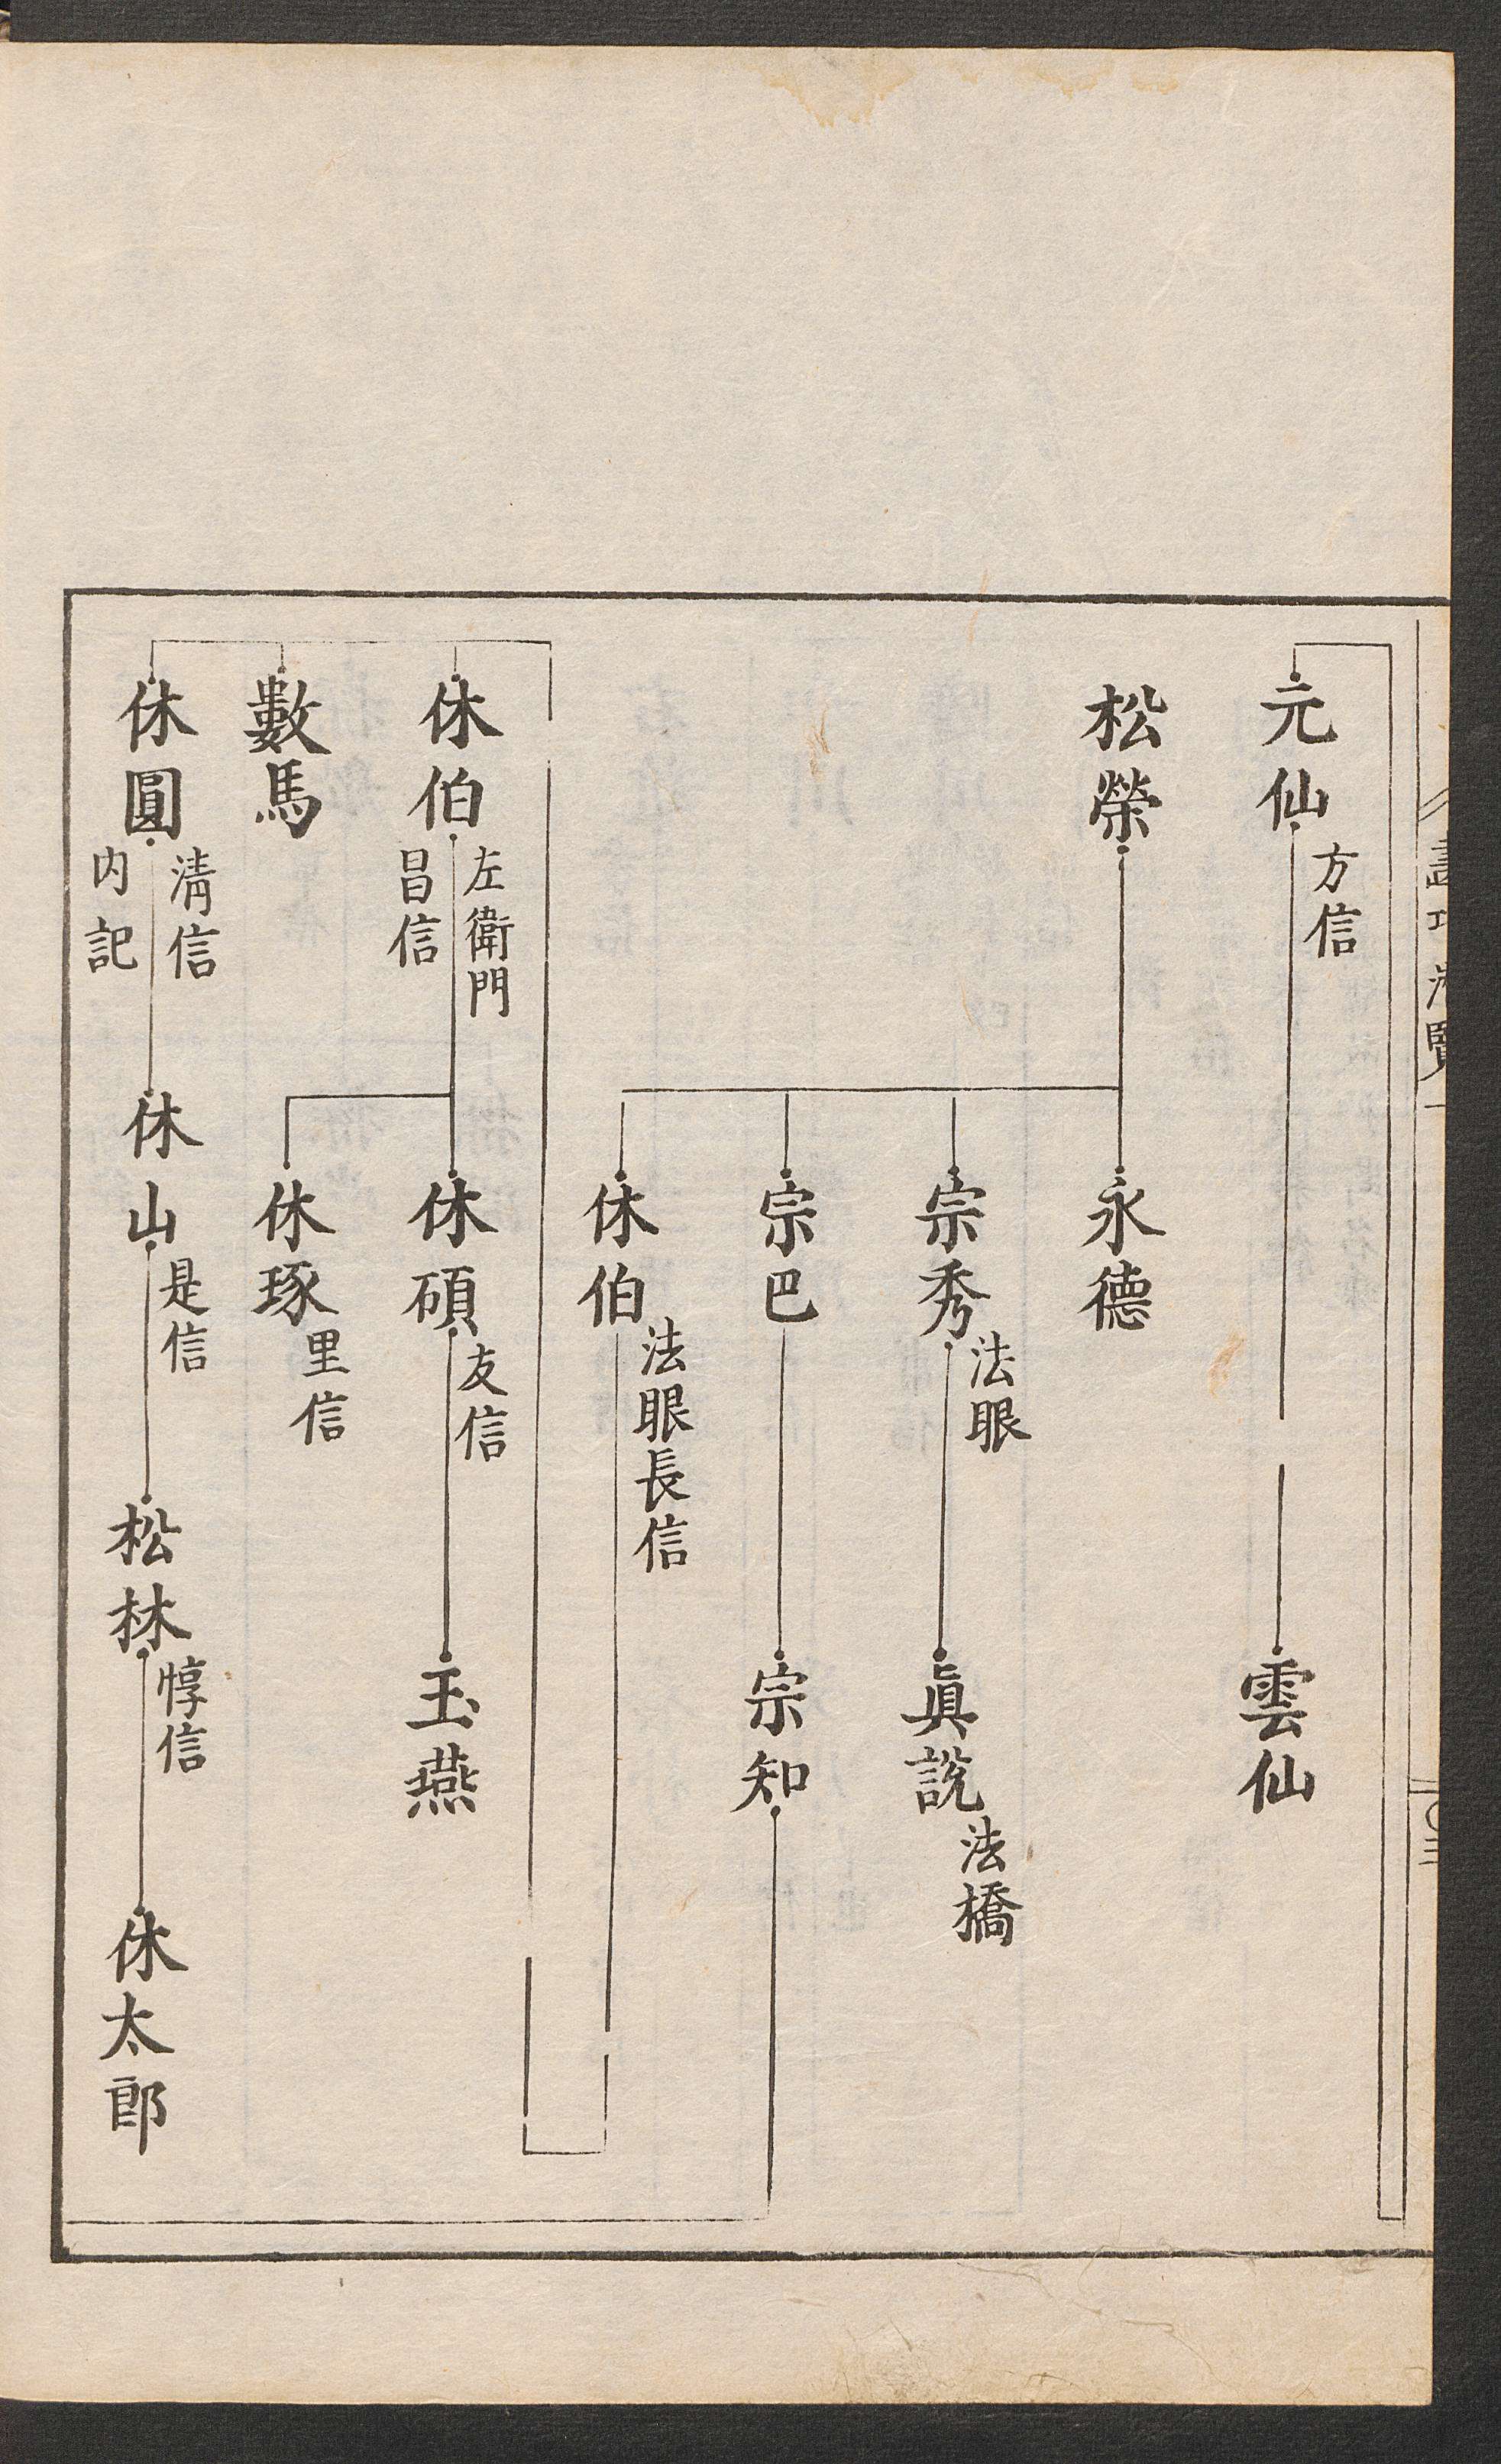 元仙 方信
雲仙
松榮
永德
宗秀 法眼
眞説 法橋
宗巴
宗知
休伯 法眼長信
休伯 左衛門 昌信
休碩 友信
玉燕
休琢 里信
數馬
休圓 淸信 内記
休山 是信
松林 惇信
休太郎